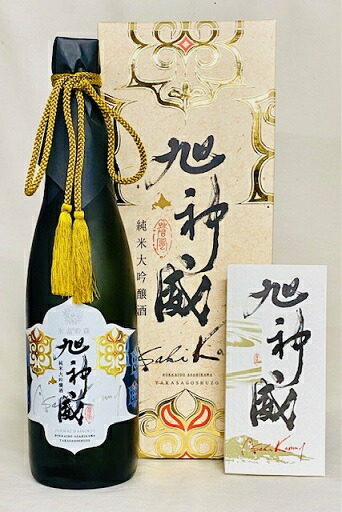 旭神威
純米大吟醸酒
HOKKAIDO ASAHIKAWA
TAKASAGOSHUZO
旭神威
純米大吟醸酒
HOKKAIDO ASAHIKAWA
TAKASAGOSHUZO
旭神威